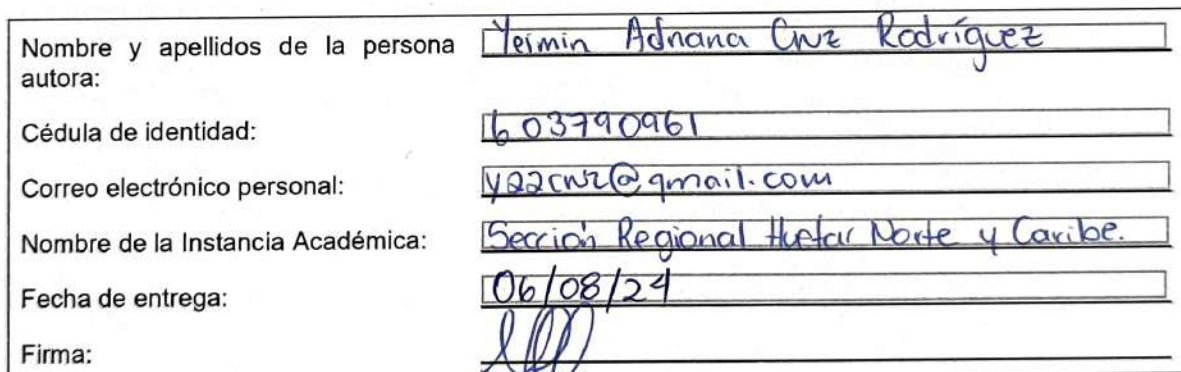 Nombre y apellidos de la persona autora: Yeimin Adriana Cruz Rodríguez
Cédula de identidad: 603790961
Correo electrónico personal: y22cruz@gmail.com
Nombre de la Instancia Académica: Sección Regional Huetar Norte y Caribe.
Fecha de entrega: 06/08/24
Firma: